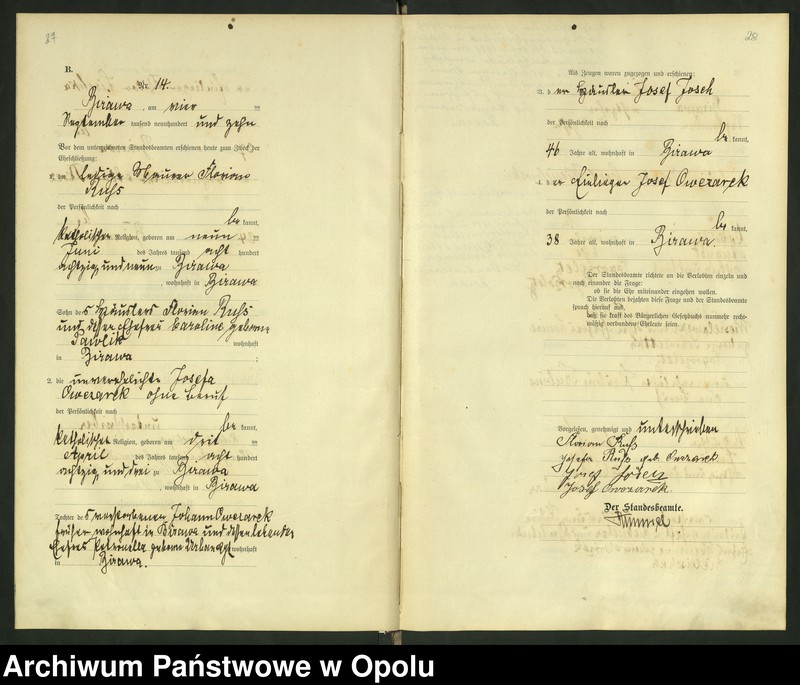 27
B.
Nr. 14.
Birawa, am vier
September tausend neunhundert und zehn
Vor dem unterzeichneten Standesbeamten erschienen heute zum Zweck der
Eheschließung:
1. der ledige Maurer Florian
Russ
der Persönlichkeit nach
be kannt,
katholischer Religion, geboren am neun
Juni des Jahres tausend acht hundert
achtzig und neun zu Birawa
, wohnhaft in Birawa
Sohn des Häuslers Florian Russ
und dessen Ehefrau Karoline geborene
Pawlik wohnhaft
in Birawa
2. die unverehelichte Josefa
Owczarek ohne Beruf
der Persönlichkeit nach
be kannt,
katholischer Religion, geboren am drei
April des Jahres tausend acht hundert
achtzig und drei zu Birawa
, wohnhaft in Birawa
Tochter des verstorbenen Johann Owczarek
früher wohnhaft in Birawa und dessen lebenden
Ehefrau Petronella geborene wohnhaft
in Birawa.
28
Als Zeugen waren zugezogen und erschienen:
3. der Häusler Josef Josch
der Persönlichkeit nach
be kannt,
46 Jahre alt, wohnhaft in Birawa
4. der Einlieger Josef Owczarek
der Persönlichkeit nach
be kannt,
38 Jahre alt, wohnhaft in Birawa
Der Standesbeamte richtete an die Verlobten einzeln und
nach einander die Frage:
ob sie die Ehe miteinander eingehen wollen.
Die Verlobten bejahten diese Frage und der Standesbeamte
sprach hierauf aus,
daß sie kraft des Bürgerlichen Gesetzbuchs nunmehr recht-
mäßig verbundene Eheleute seien.
Vorgelesen, genehmigt und unterschrieben
Florian Russ
Josefa Russ geb. Owczarek
Josef Josch
Josef Owczarek
Der Standesbeamte.
Himmel
Archiwum Państwowe w Opolu